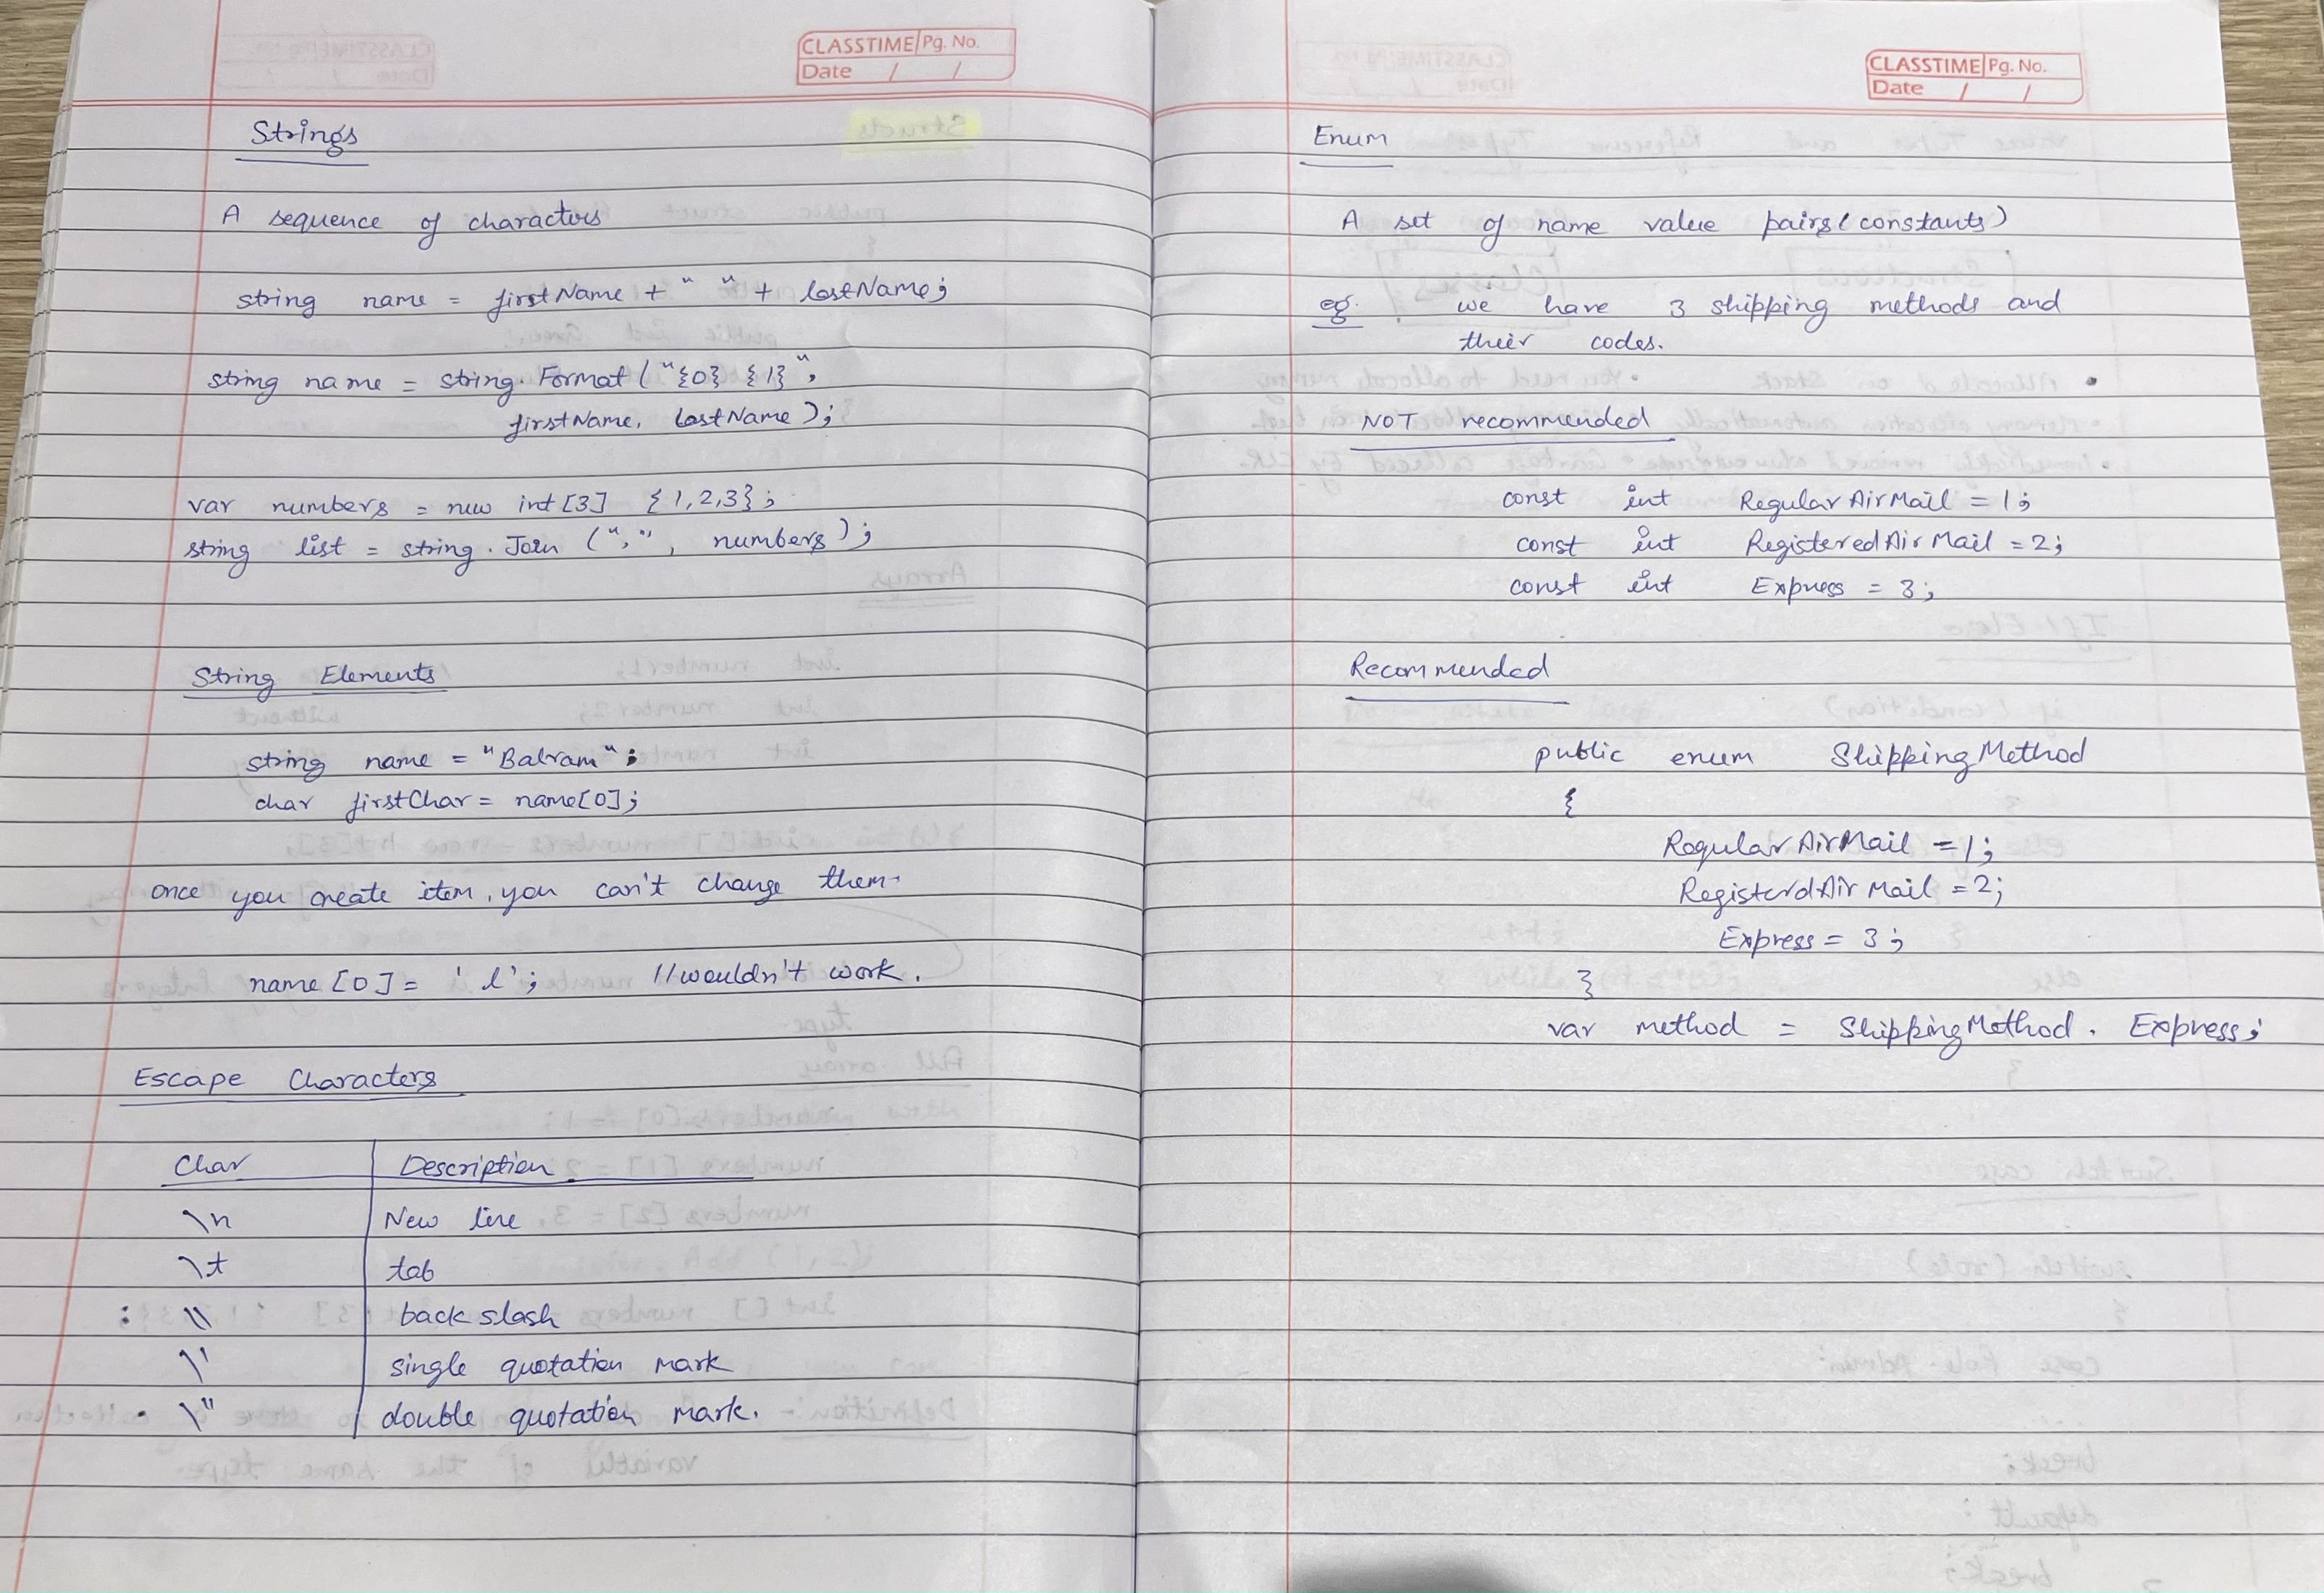 CLASSTIME Pg. No.
Date / /
Strings
A sequence of charactors
string name = firstName + " " + lastName;
string name = string.Format ("{0} {1}",
firstName, lastName);
var numbers = new int[3] {1,2,3};
string list = string.Join (",", numbers);
String Elements
string name = "Balram";
char firstChar = name[0];
once you create item, you can't change them.
name [0] = 'l'; //wouldn't work.
Escape Characters
Char Description
\n New line
\t tab
\\ back slash
\' single quotation mark
\" double quotation mark.
CLASSTIME Pg. No.
Date / /
Enum
A set of name value pairs (constants)
eg. we have 3 shipping methods and
their codes.
NOT recommended
const int RegularAirMail = 1;
const int RegisteredAirMail = 2;
const int Express = 3;
Recommended
public enum ShippingMethod
{
RegularAirMail = 1;
RegisterdAirMail = 2;
Express = 3;
}
var method = ShippingMethod. Express;